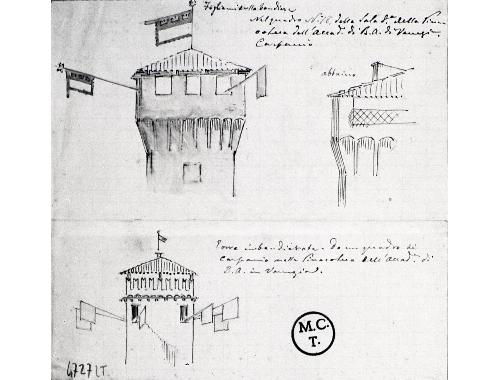 Nel quadro N. 16. della Sala d.ª della Pina
coteca dell'Accad.ª di B.A. di Venezia.
Carpaccio
abbaino
Torre imbandierata. Da un quadro di
Carpaccio nella Pinacoteca dell'Accad.ª di
B.A. in Venezia.
M.C.
T.
4727 LT.